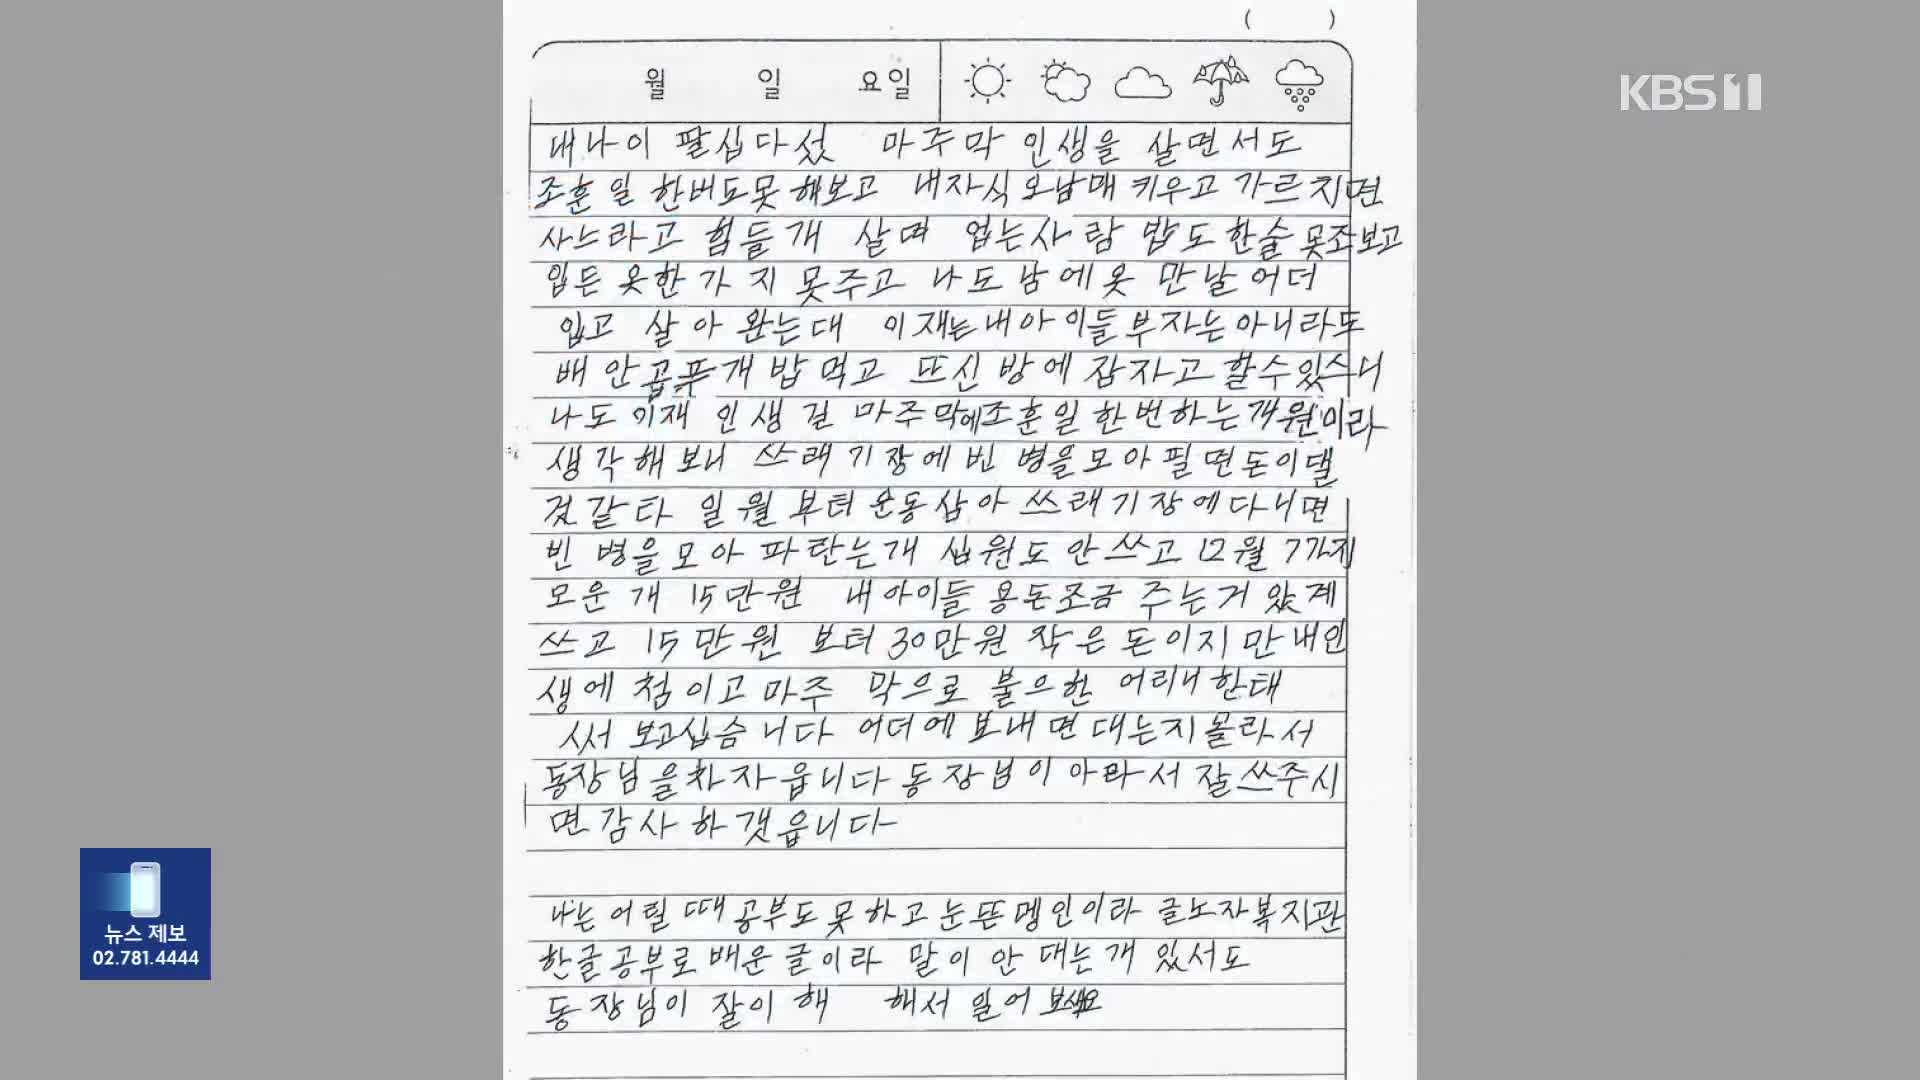 (          )
KBS 1
월 일 요일
내나이 팔십다섰 마주막 인생을 살면서도
조훈 일 한버도못 해보고 내자식 오남매 키우고 가르치면
사느라고 힘들개 살며 업는사람 밥도 한술 못조보고
입든 옷한가지 못주고 나도 남에옷 만날 어더
입고 살아 완는대 이재는내아이들 부자는아니라도
배 안곱푸개 밥먹고 뜨신 방에 잠자고 할수있스니
나도 이재 인생길 마주막에조훈일 한번하는개원이라
생각해보니 쓰래기장에 빈 병을모아 필면돈이댈
겄같타 일월부터 운동삼아 쓰래기장에다니면
빈 병을모아 파란는개 십원도 안쓰고 12월 7가지
모운개 15만원 내아이들 용돈조금 주는거 았계
쓰고 15만원 보터 30만원 작은 돈이지만 내인
생에 첨이고 마주막으로 불으한 어리니한태
써 보고십슴니다 어더에 보내면 대는지몰라서
동장님을차자읍니다 동장님이 아라서 잘쓰주시
면감사하갯읍니다
나는 어릴 때 공부도못하고 눈뜬 멩인이라 글노자복지관
한글공부로 배운글이라 말이 안 대는개 있서도
동장님이 잘이해 해서 일어 보새요
뉴스 제보
02.781.4444